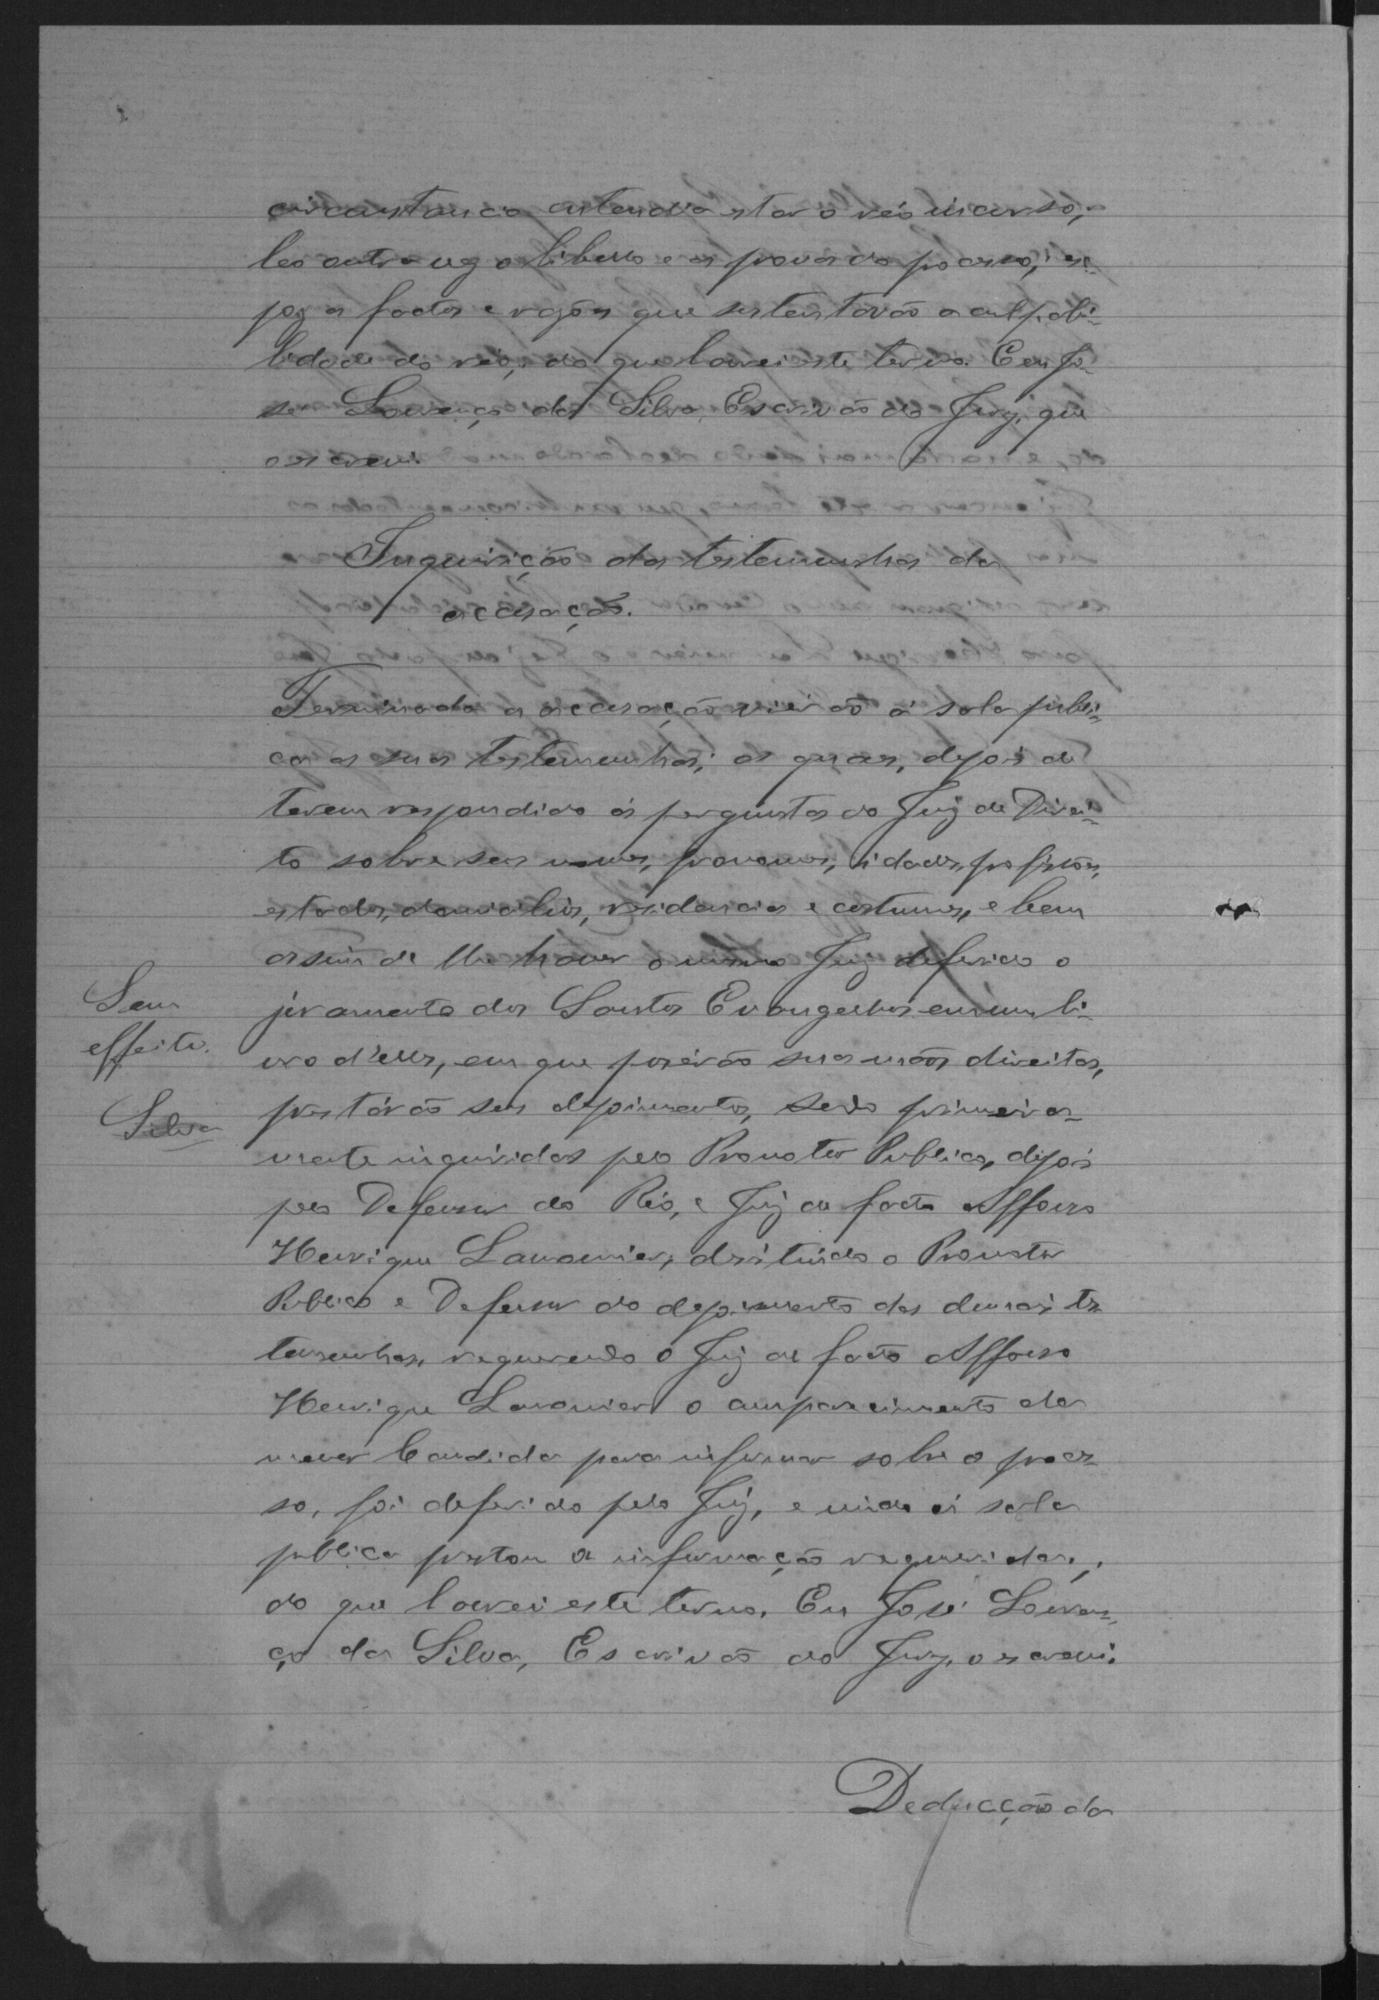 circunstancia entendia estar o réo incurso,
leo outra vez o libello e as provas do processo, ex-
poz os factos e razões que sustentavão a culpabi-
lidade do réo, do que lavrei este termo. Eu Jo-
sé Lourenço da Silva, Escrivão do Jury, que
o escrevi.
Inquirição das testemunhas da
accusação.
Terminada a accusação vierão á sala publi-
ca as suas testemunhas; as quaes, depois de
terem respondido ás perguntas do Juiz de Direi-
to sobre seus nomes, pronomes, idades, profissões,
estados, domicilios, residencias e costumes, e bem
assim de lhe haver o mesmo Juiz deferido o
Sem
effeito.
Silva
juramento dos Santos Evangelhos em um li-
vro d'elles, em que poserão suas mãos direitas,
prestárão seus depoimentos, sendo primeira-
mente inquiridas pelo Promotor Publico, depois
pelo Defensor do Réo, e Juiz de facto Affonso
Henrique Lamounier, desistindo o Promotor
Publico e Defensor do depoimento das demais tes
temunhas, requerendo o Juiz de facto Affonso
Henrique Lamounier o comparecimento da
menor Candida para informar sobre o proces-
so, foi deferido pelo Juiz, e vinda á sala
publica prestou a informação requerida;
do que lavrei este termo. Eu José Louren-
ço da Silva, Escrivão do Jury, o escrevi.
Deducção da